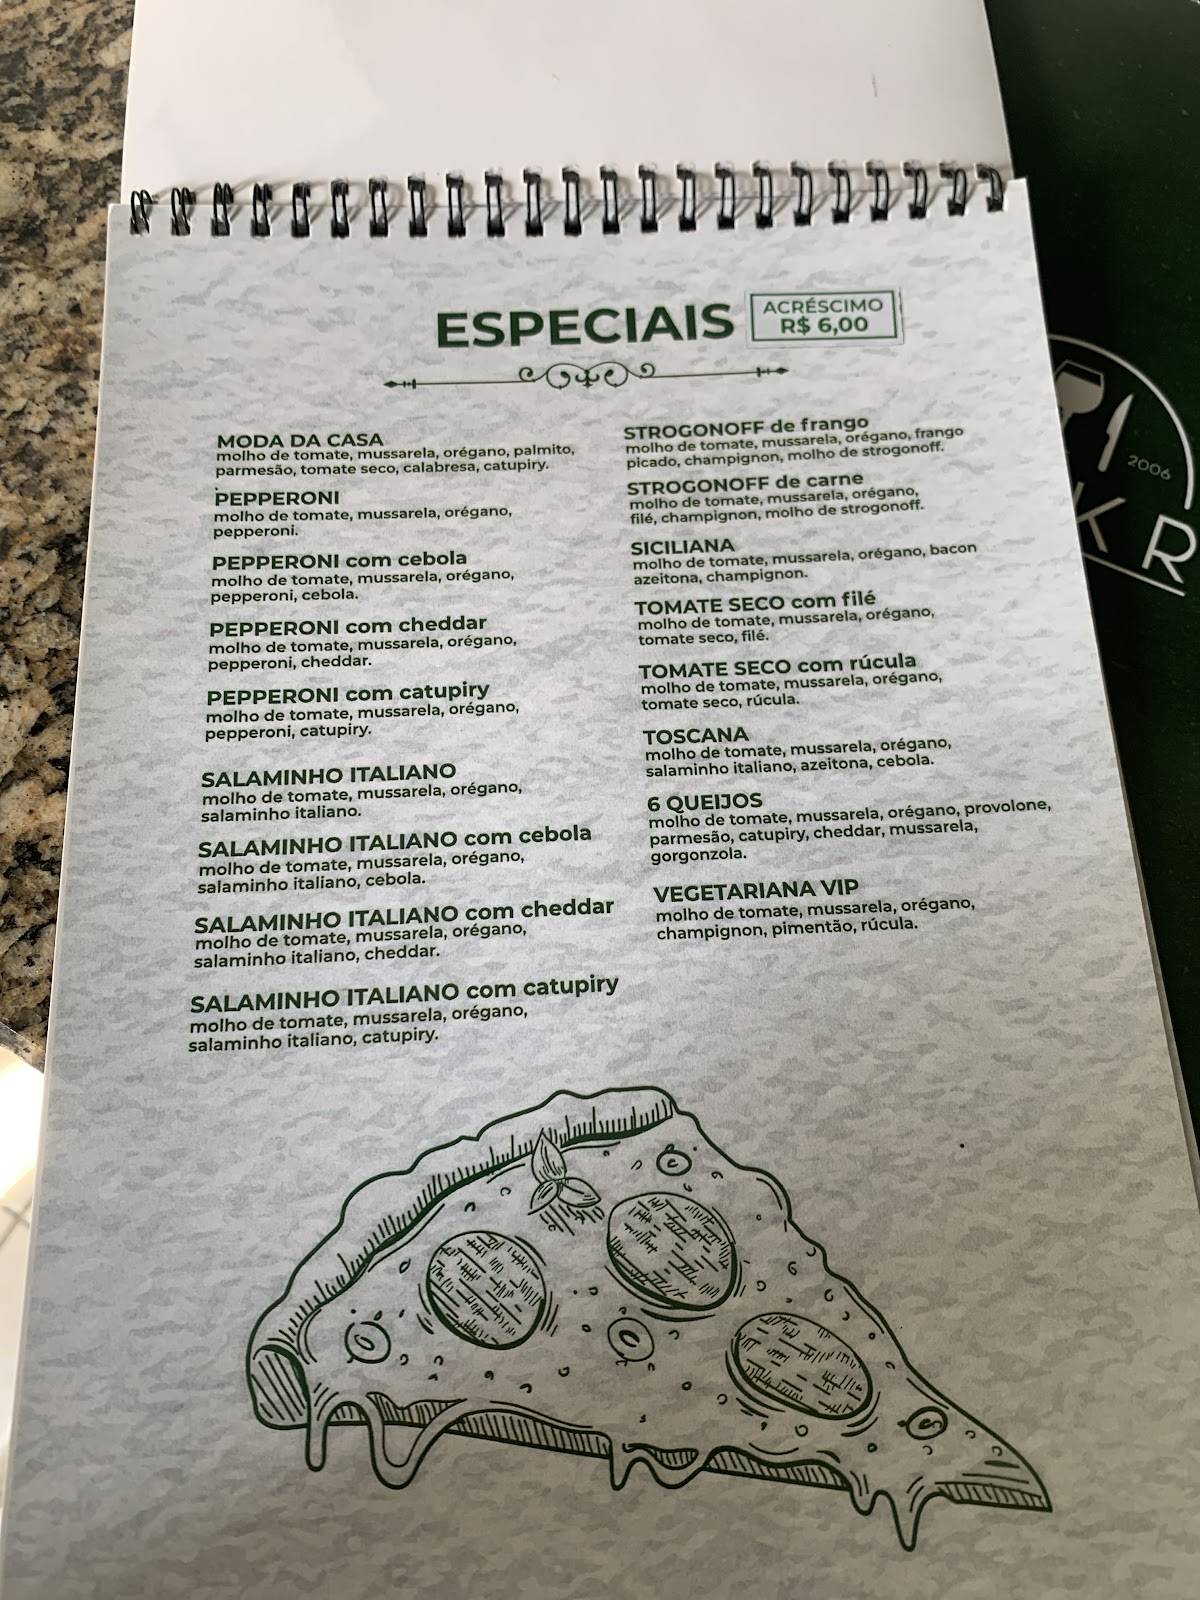 ESPECIAIS
ACRÉSCIMO
R$ 6,00
MODA DA CASA
molho de tomate, mussarela, orégano, palmito,
parmesão, tomate seco, calabresa, catupiry.
PEPPERONI
molho de tomate, mussarela, orégano,
pepperoni.
PEPPERONI com cebola
molho de tomate, mussarela, orégano,
pepperoni, cebola.
PEPPERONI com cheddar
molho de tomate, mussarela, orégano,
pepperoni, cheddar.
PEPPERONI com catupiry
molho de tomate, mussarela, orégano,
pepperoni, catupiry.
SALAMINHO ITALIANO
molho de tomate, mussarela, orégano,
salaminho italiano.
SALAMINHO ITALIANO com cebola
molho de tomate, mussarela, orégano,
salaminho italiano, cebola.
SALAMINHO ITALIANO com cheddar
molho de tomate, mussarela, orégano,
salaminho italiano, cheddar.
SALAMINHO ITALIANO com catupiry
molho de tomate, mussarela, orégano,
salaminho italiano, catupiry.
STROGONOFF de frango
molho de tomate, mussarela, orégano, frango
picado, champignon, molho de strogonoff.
STROGONOFF de carne
molho de tomate, mussarela, orégano,
filé, champignon, molho de strogonoff.
SICILIANA
molho de tomate, mussarela, orégano, bacon
azeitona, champignon.
TOMATE SECO com filé
molho de tomate, mussarela, orégano,
tomate seco, filé.
TOMATE SECO com rúcula
molho de tomate, mussarela, orégano,
tomate seco, rúcula.
TOSCANA
molho de tomate, mussarela, orégano,
salaminho italiano, azeitona, cebola.
6 QUEIJOS
molho de tomate, mussarela, orégano, provolone,
parmesão, catupiry, cheddar, mussarela,
gorgonzola.
VEGETARIANA VIP
molho de tomate, mussarela, orégano,
champignon, pimentão, rúcula.
2006
K R